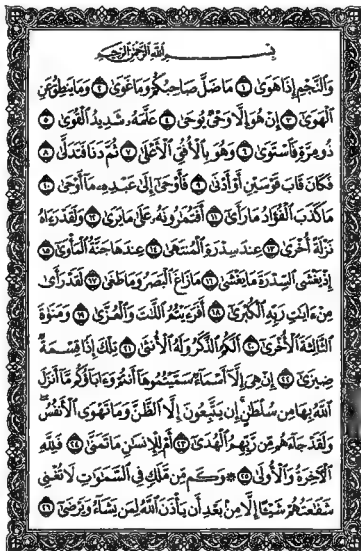 بِسْمِ اللَّهِ الرَّحْمَٰنِ الرَّحِيمِ
وَالنَّجْمِ إِذَا هَوَىٰ ١ مَا ضَلَّ صَاحِبُكُمْ وَمَا غَوَىٰ ٢ وَمَا يَنطِقُ عَنِ
الْهَوَىٰ ٣ إِنْ هُوَ إِلَّا وَحْيٌ يُوحَىٰ ٤ عَلَّمَهُ شَدِيدُ الْقُوَىٰ ٥
ذُو مِرَّةٍ فَاسْتَوَىٰ ٦ وَهُوَ بِالْأُفُقِ الْأَعْلَىٰ ٧ ثُمَّ دَنَا فَتَدَلَّىٰ ٨
فَكَانَ قَابَ قَوْسَيْنِ أَوْ أَدْنَىٰ ٩ فَأَوْحَىٰ إِلَىٰ عَبْدِهِ مَا أَوْحَىٰ ١٠
مَا كَذَبَ الْفُؤَادُ مَا رَأَىٰ ١١ أَفَتُمَارُونَهُ عَلَىٰ مَا يَرَىٰ ١٢ وَلَقَدْ رَءَاهُ
نَزْلَةً أُخْرَىٰ ١٣ عِندَ سِدْرَةِ الْمُنتَهَىٰ ١٤ عِندَهَا جَنَّةُ الْمَأْوَىٰ ١٥
إِذْ يَغْشَى السِّدْرَةَ مَا يَغْشَىٰ ١٦ مَا زَاغَ الْبَصَرُ وَمَا طَغَىٰ ١٧ لَقَدْ رَأَىٰ
مِنْ ءَايَاتِ رَبِّهِ الْكُبْرَىٰ ١٨ أَفَرَءَيْتُمُ اللَّاتَ وَالْعُزَّىٰ ١٩ وَمَنَوٰةَ
الثَّالِثَةَ الْأُخْرَىٰ ٢٠ أَلَكُمُ الذَّكَرُ وَلَهُ الْأُنثَىٰ ٢١ تِلْكَ إِذًا قِسْمَةٌ
ضِيزَىٰ ٢٢ إِنْ هِيَ إِلَّا أَسْمَاءٌ سَمَّيْتُمُوهَا أَنتُمْ وَءَابَاؤُكُم مَّا أَنزَلَ
اللَّهُ بِهَا مِن سُلْطَانٍ إِن يَتَّبِعُونَ إِلَّا الظَّنَّ وَمَا تَهْوَى الْأَنفُسُ
وَلَقَدْ جَاءَهُم مِّن رَّبِّهِمُ الْهُدَىٰ ٢٣ أَمْ لِلْإِنسَانِ مَا تَمَنَّىٰ ٢٤ فَلِلَّهِ
الْآخِرَةُ وَالْأُولَىٰ ٢٥ ۞ وَكَم مِّن مَّلَكٍ فِي السَّمَاوَاتِ لَا تُغْنِي
شَفَاعَتُهُمْ شَيْئًا إِلَّا مِنْ بَعْدِ أَن يَأْذَنَ اللَّهُ لِمَن يَشَاءُ وَيَرْضَىٰ ٢٦